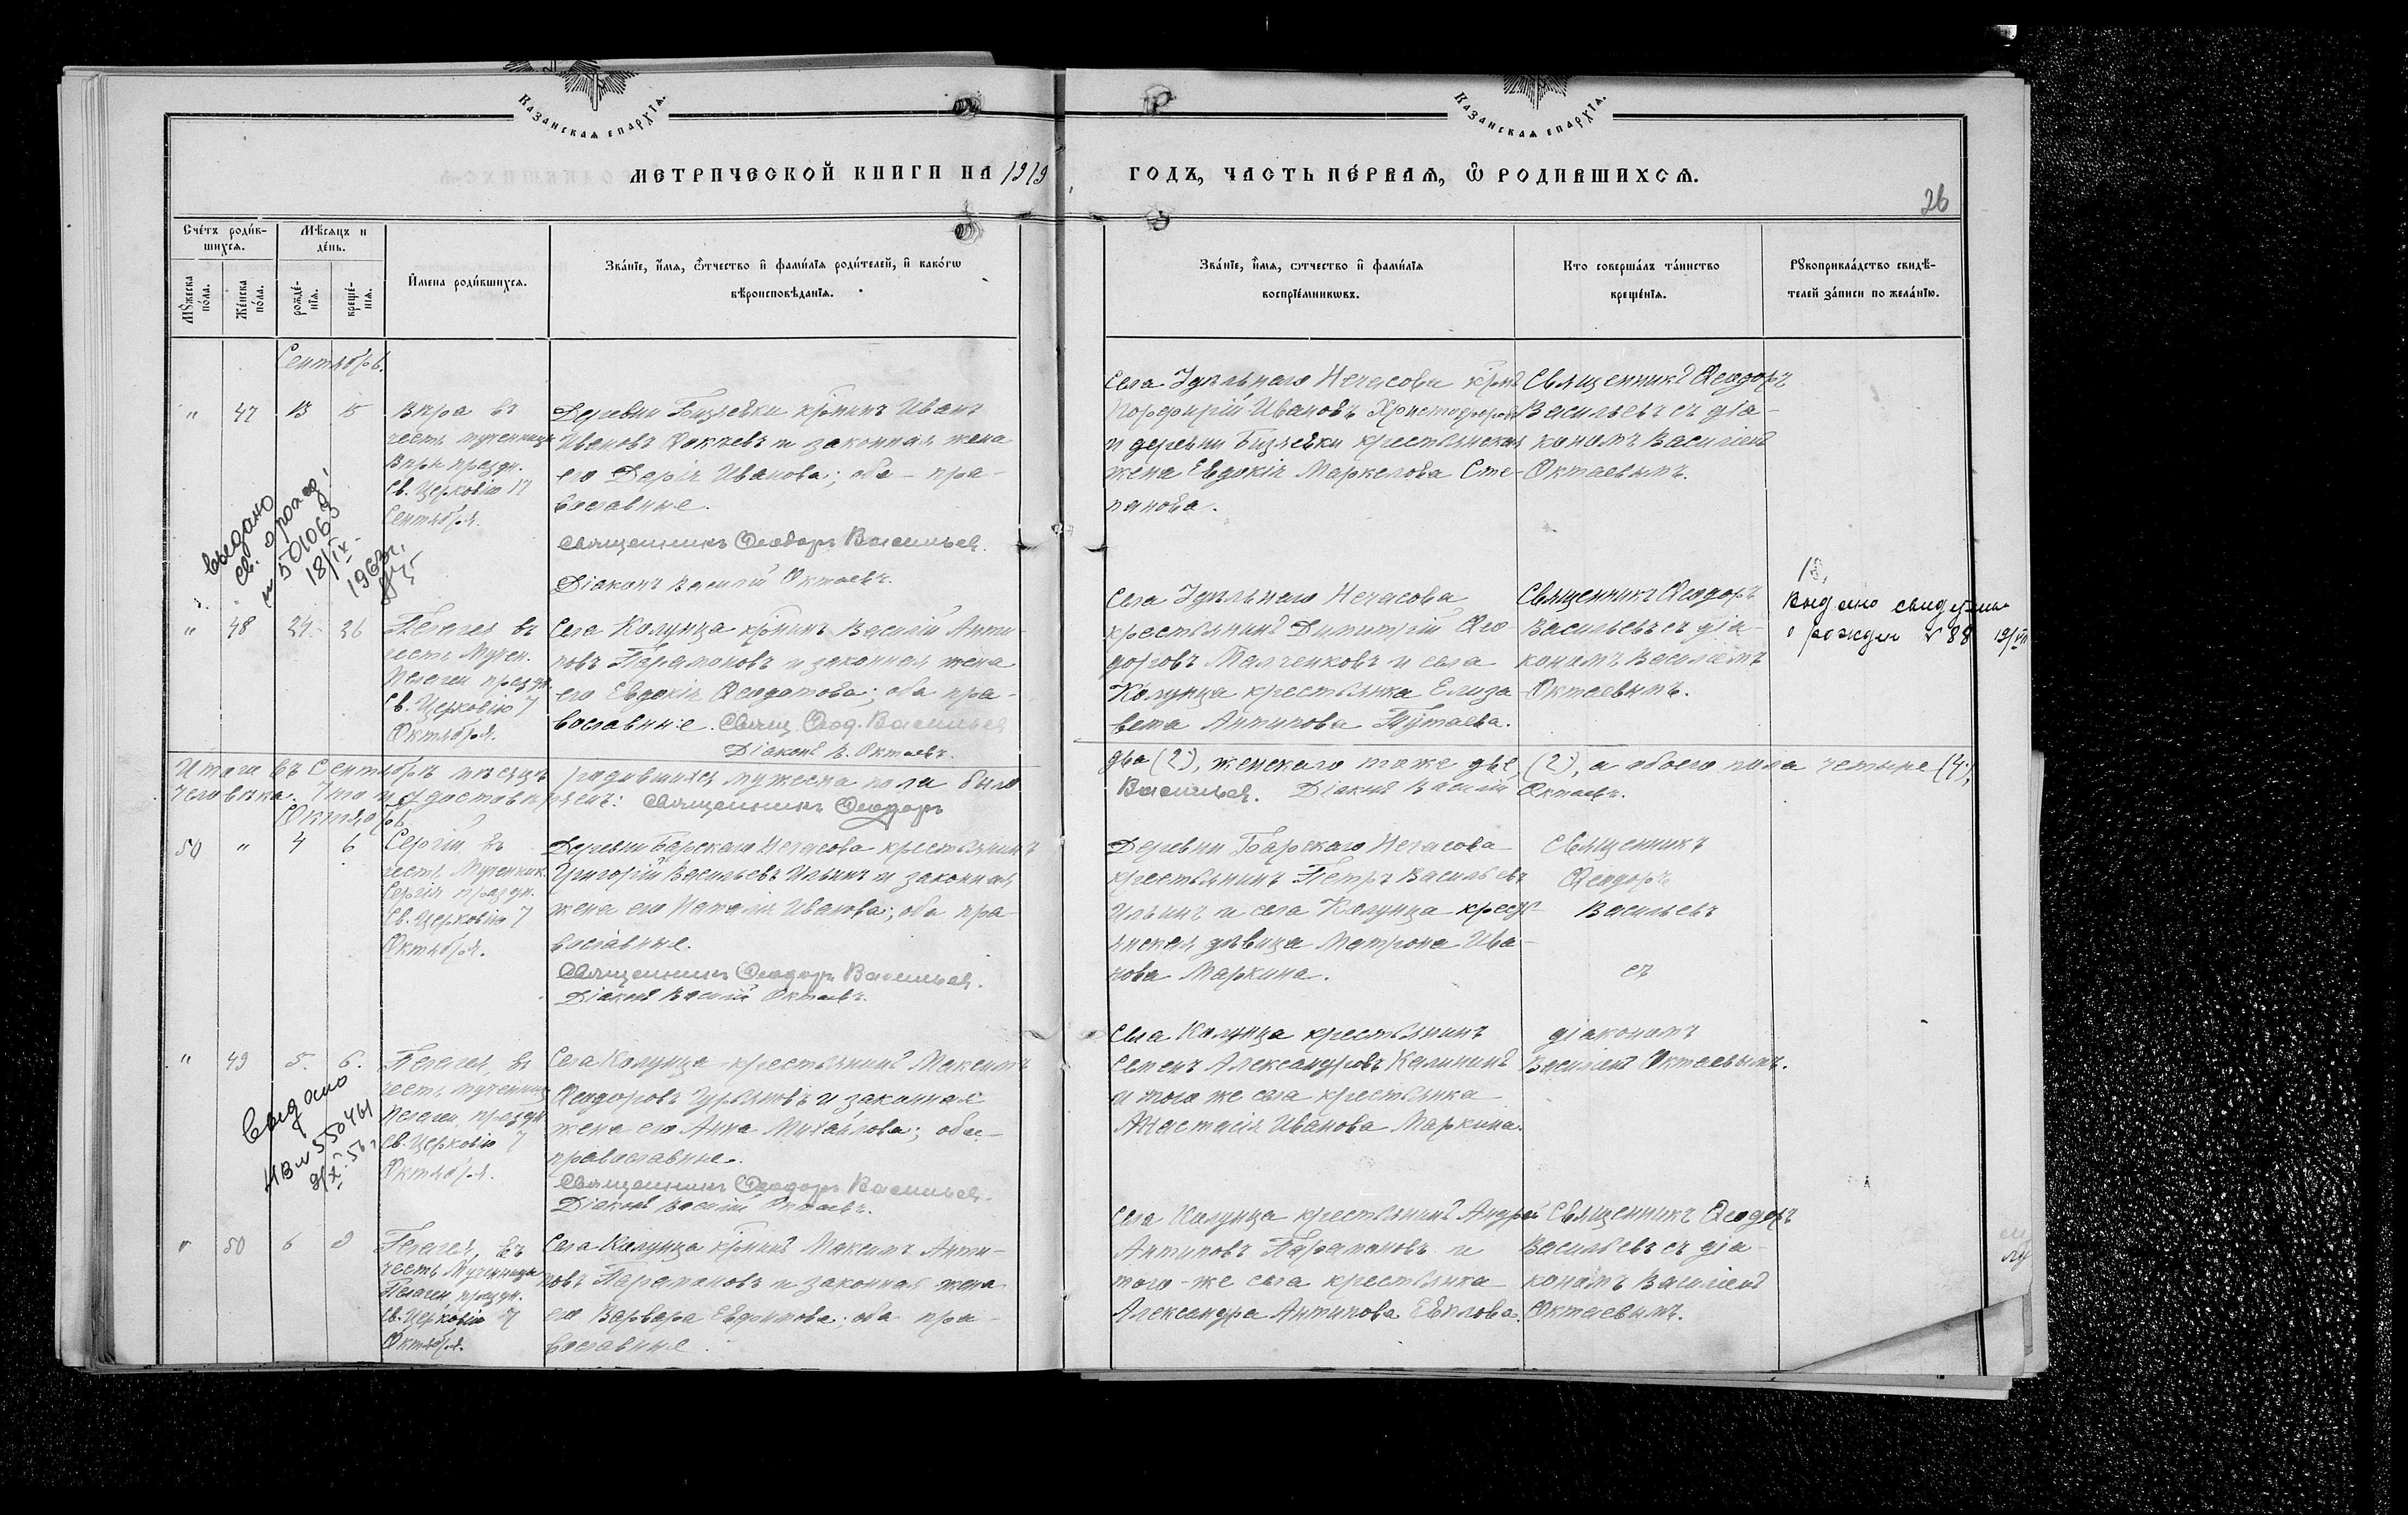 Казанская епархїѧ.
Казанская епархїѧ.
МЕТРИЧЕСКОЙ КНИГИ НА 1919
ГОДЪ, ЧАСТЬ ПЕ́РВАѦ, Ѡ҆ РОДИВШИХСѦ.
26
Сче́тъ роди́в-
шихсѧ.
Мѣ́сѧцъ и
де́нь.
Мꙋ́жеска
по́ла.
Же́нска
по́ла.
рожде́-
нїѧ.
креще́-
нїѧ.
И҆мена роди́вшихсѧ.
Зва́нїе, и҆́мѧ, ѻ҆́тчество и҆ фами́лїѧ роди́телей, и҆ како́гѡ
вѣроисповѣ́данїѧ.
Зва́нїе, и҆́мѧ, ѻтчество и҆ фами́лїѧ
воспрїе́мникѡвъ.
Кто соверша́лъ та́инство
креще́нїѧ.
Рꙋкоприкла́дство свидѣ́-
телей за́писи по жела́нїю.
Сентябрь.
" 47 13 15
Вѣра въ
честь мученицы
Вѣры праздн.
Св. Церковію 17
Сентября.
Деревни Бизяевки кр-нинъ Иванъ
Ивановъ Фокѣевъ и законная жена
его Дарія Иванова; оба - пра-
вославные.
Священникъ Ѳеодоръ Васильев.
Діаконъ Василій Октаевъ.
Села Удѣльнаго Нечасова кр-нъ
Порфирій Ивановъ Христофоровъ
и деревни Бизяевки крестьянская
жена Евдокія Маркелова Сте-
панова.
Священникъ Ѳеодоръ
Васильевъ съ діа-
кономъ Василіемъ
Октаевымъ.
Выдано
св. о рожд.
501063
18/IX-
1963г.
" 48 24 26
Пелагея въ
честь Мучен.
Пелагеи праздн.
Св. Церковію 7
Октября.
Села Колунца кр-нинъ Василій Анти-
повъ Парамоновъ и законная жена
его Евдокія Ѳеодотова; оба пра-
вославные. Свящ. Ѳеод. Васильев
Діаконъ В. Октаевъ.
Села Удѣльнаго Нечасова
крестьянинъ Димитрій Ѳео-
доровъ Малченковъ и села
Колунца крестьянка Елиза-
вета Антипова Путаева.
Священникъ Ѳеодоръ
Васильевъ съ діа-
кономъ Василіемъ
Октаевымъ.
Выдано свидетель
о рожден № 88 19/VII
Итого въ Сентябрѣ мѣсяцѣ родившихся мужеска пола было
два (2), женскаго тоже двѣ (2), а обоего пола четыре (4),
человѣка. Что и удостовѣряемъ: Священникъ Ѳеодоръ
Васильев. Діаконъ Василій Октаевъ.
Октябрь
50 " 4 6
Сергій въ
честь Мученик.
Сергія праздн.
Св. Церковію 7
Октября.
Деревни Барскаго Нечасова крестьянинъ
Григорій Васильевъ Ильинъ и законная
жена его Наталія Иванова; оба пра-
вославные.
Священникъ Ѳеодоръ Васильев.
Діаконъ Василій Октаевъ.
Деревни Барскаго Нечасова
крестьянинъ Петръ Васильевъ
Ильинъ и села Колунца кресть-
янская дѣвица Матрона Ива-
нова Маркина.
Священникъ
Ѳеодоръ
Васильевъ
съ
діакономъ
Василіемъ Октаевымъ.
" 49 5. 6.
Пелагея, въ
честь мученицы
Пелагеи, праздн
Св. Церковію 7
Октября.
Села Колунца - крестьянинъ Максимъ
Ѳеодоровъ Гурьяновъ и законная
жена его Анна Михайлова; оба -
православные.
Священникъ Ѳеодоръ Васильев.
Діаконъ Василій Октаевъ.
Села Колунца крестьянинъ
Семенъ Александровъ Калининъ
и того же села крестьянка
Анастасія Иванова Маркина.
Выдано
550461
" 50 6 9
Пелагея, въ
честь Мученицы
Пелагеи, праздн.
Св. Церковію 7
Октября.
Села Колунца кр-нинъ Максимъ Анти-
повъ Парамоновъ и законная жена
его Варвара Евдокимова; оба пра-
вославные.
Села Колунца крестьянинъ Андрей
Антиповъ Парамоновъ и
того-же села крестьянка
Александра Антипова Евплова.
Священникъ Ѳеодоръ
Васильевъ съ діа-
кономъ Василіемъ
Октаевымъ.